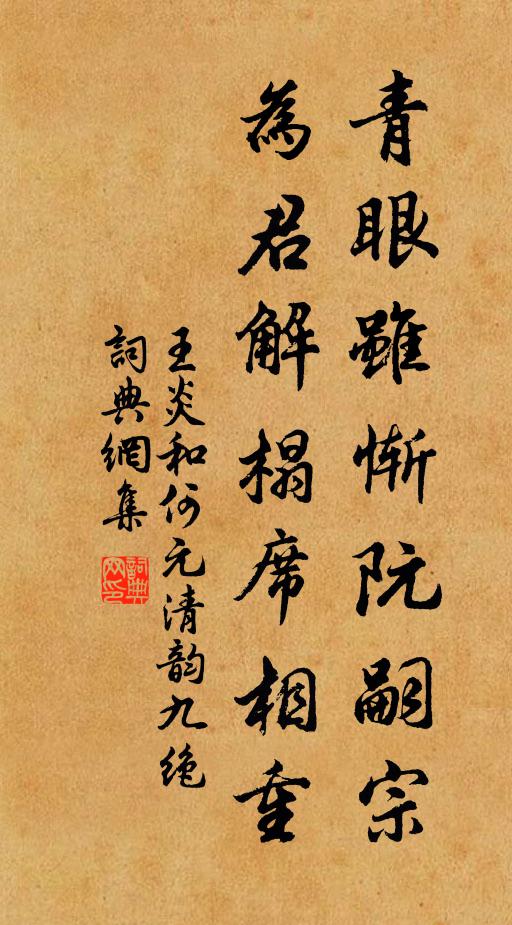 青眼雖慚阮嗣宗
為君解榻席相重
王炎和何元清韵九绝
詞典網集
詞典网印